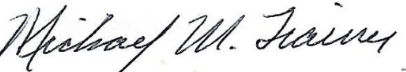 Michael M. Trainer